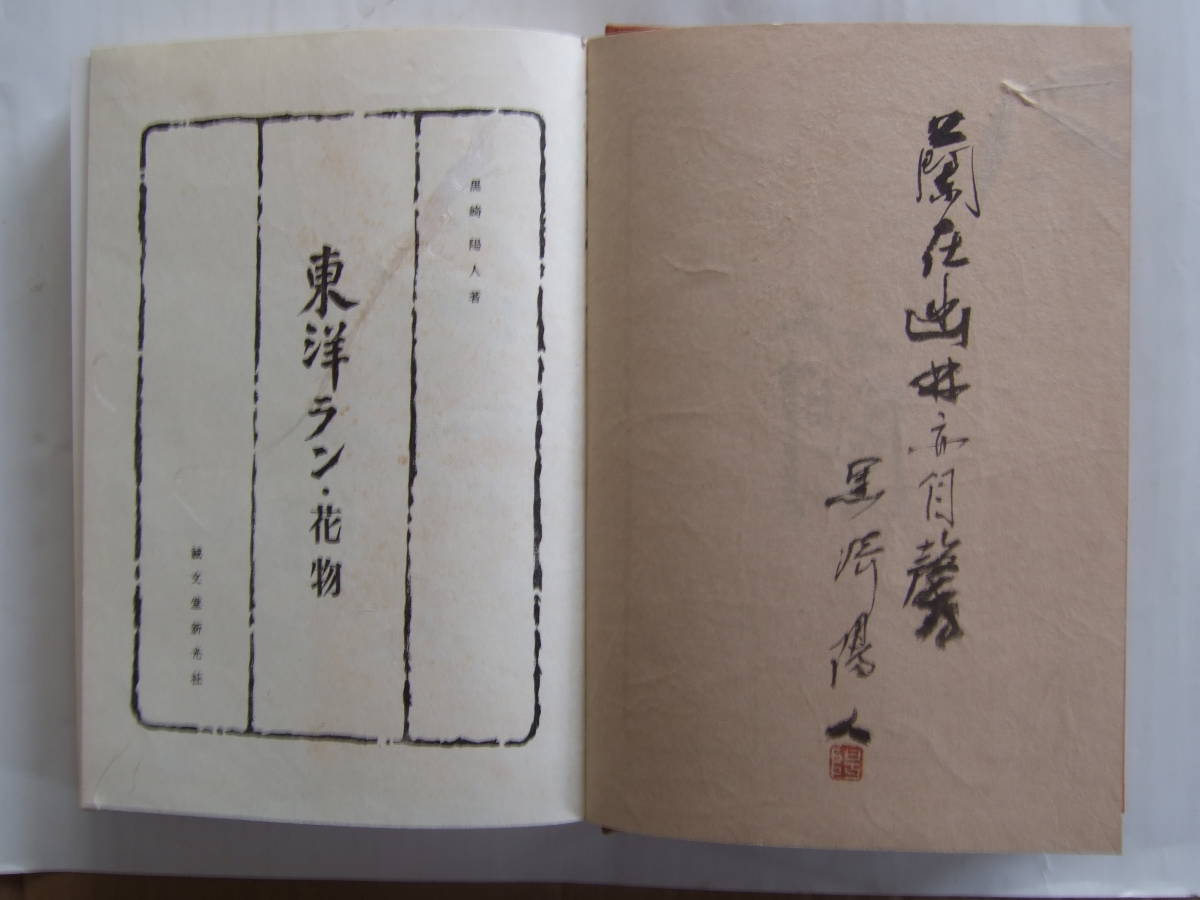 蘭在幽林亦自馨
黒崎陽人
黒崎陽人著
東洋ラン・花物
誠文堂新光社